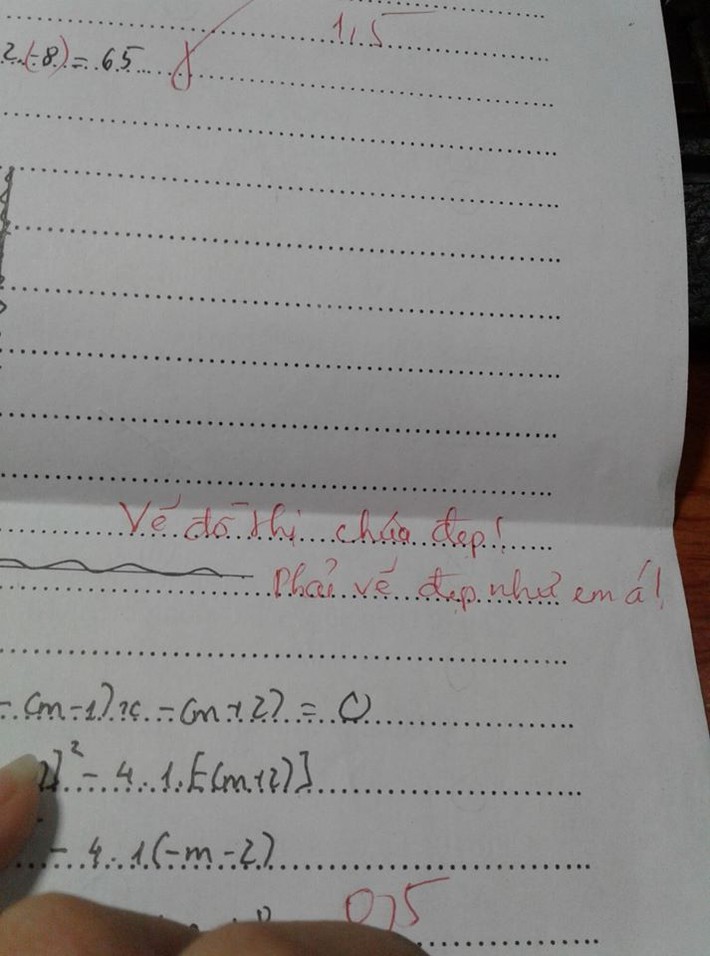 1,5
2.(-8) = 65
Vẽ đồ thị chưa đẹp!
Phải vẽ đẹp như em á!
- (m-1)x - (m+2) = 0
]² - 4.1.[-(m+2)]
- 4.1(-m-2)
0,5